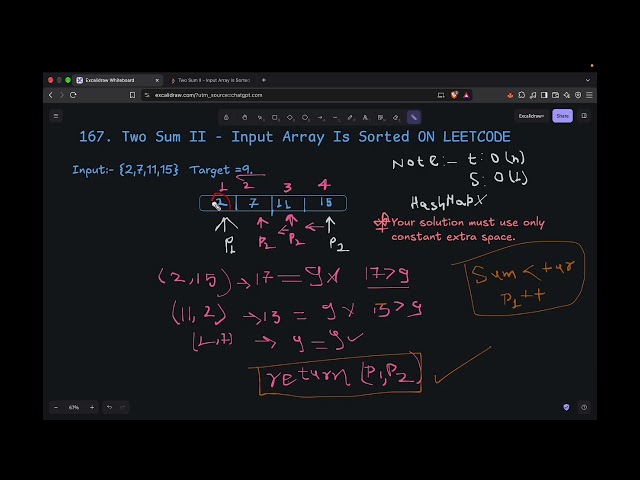 Excalidraw Whiteboard
Two Sum II - Input Array Is Sorte
excalidraw.com/?utm_source=chatgpt.com
Excalidraw+
Share
167. Two Sum II - Input Array Is Sorted ON LEETCODE
Input:- {2,7,11,15} Target =9,
Note:- t: O(n)
S: O(1)
HashMap X
1 2 3 4
2 7 11 15
P1 P2 P2 P2
Your solution must use only
constant extra space.
(2,15) → 17 = 9 x 17>9
(11,2) → 13 = 9 x 13>9
→ 9 = 9 ✓
return (P1,P2)
Sum < tar
P1++
67%